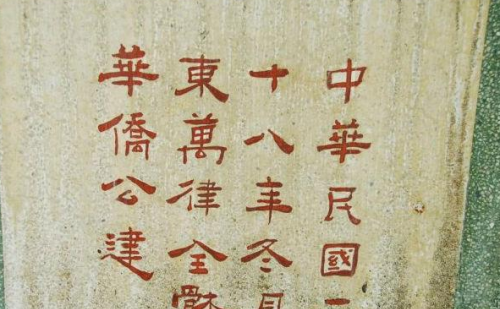 中華民國
十八年冬
東萬律全
華僑公建